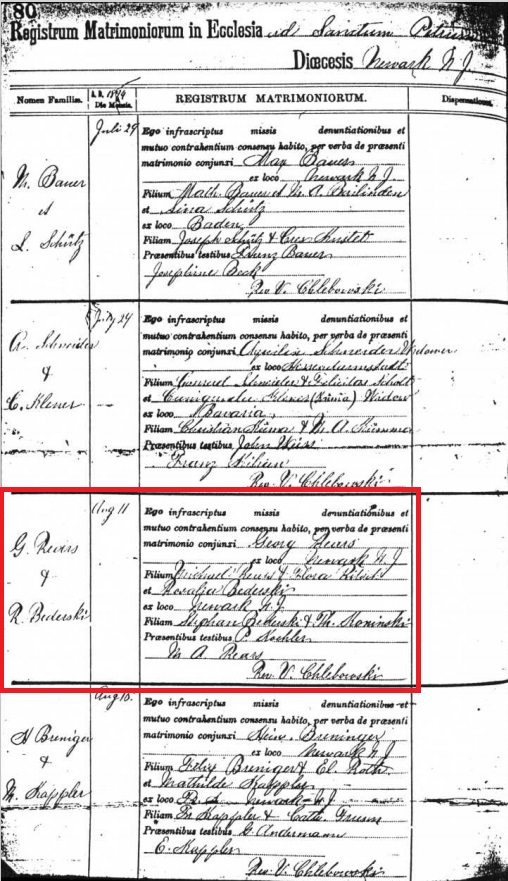 80
Registrum Matrimoniorum in Ecclesia ad Sanctum Petrum
Diœcesis Newark N J
Nomen Familiæ.
A. D. 1879
Die Mensis.
REGISTRUM MATRIMONIORUM.
Dispensationes.
M. Bauer
et
L. Schütz
Juli 29
Ego infrascriptus missis denuntiationibus et
mutuo contrahentium consensu habito, per verba de præsenti
matrimonio conjunxi Max Bauer
ex loco Newark N. J.
Filium Math. Bauer et M. A.
et Lina Schütz
ex loco Baden
Filiam Joseph Schütz &
Præsentibus testibus Franz Bauer
Josephine Beck
Rev V. Chlebowski
A. Schneider
&
C. Klener
July 29
Ego infrascriptus missis denuntiationibus et
mutuo contrahentium consensu habito, per verba de præsenti
matrimonio conjunxi Schneider Widower
ex loco
Filium Schneider & Felicitas
et Widow
ex loco Bavaria
Filiam Christian & M. A.
Præsentibus testibus John Weiss
Franz Kilian
Rev V. Chlebowski
G. Reuss
&
R. Bederski
Aug 11
Ego infrascriptus missis denuntiationibus et
mutuo contrahentium consensu habito, per verba de præsenti
matrimonio conjunxi Georg
ex loco Newark N. J.
Filium Michael & Flora
et Rosalia Bederski
ex loco Newark N. J.
Filiam Stephan Bederski & Th. Koninski
Præsentibus testibus P. Kochler
M A Rears
Rev V. Chlebowski
H Breniger
&
M. Kappler
Aug 18.
Ego infrascriptus missis denuntiationibus et
mutuo contrahentium consensu habito, per verba de præsenti
matrimonio conjunxi Hein. Breninger
ex loco Newark N J
Filium Breniger & El. Roth
et Mathilde Kappler
ex loco Newark N J
Filiam Fr Kappler & Cath.
Præsentibus testibus G. Andermann
E. Kappler
Rev V. Chlebowski